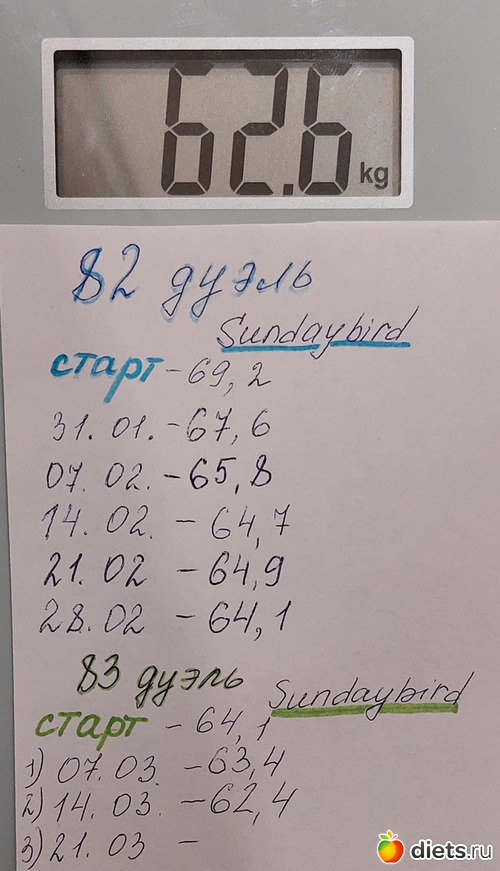 62.6 kg
82 дуэль
Sundaybird
старт - 69,2
31.01. - 67,6
07.02. - 65,8
14.02. - 64,7
21.02 - 64,9
28.02 - 64,1
83 дуэль
Sundaybird
старт - 64,1
1) 07.03. - 63,4
2) 14.03. - 62,4
3) 21.03 -
diets.ru